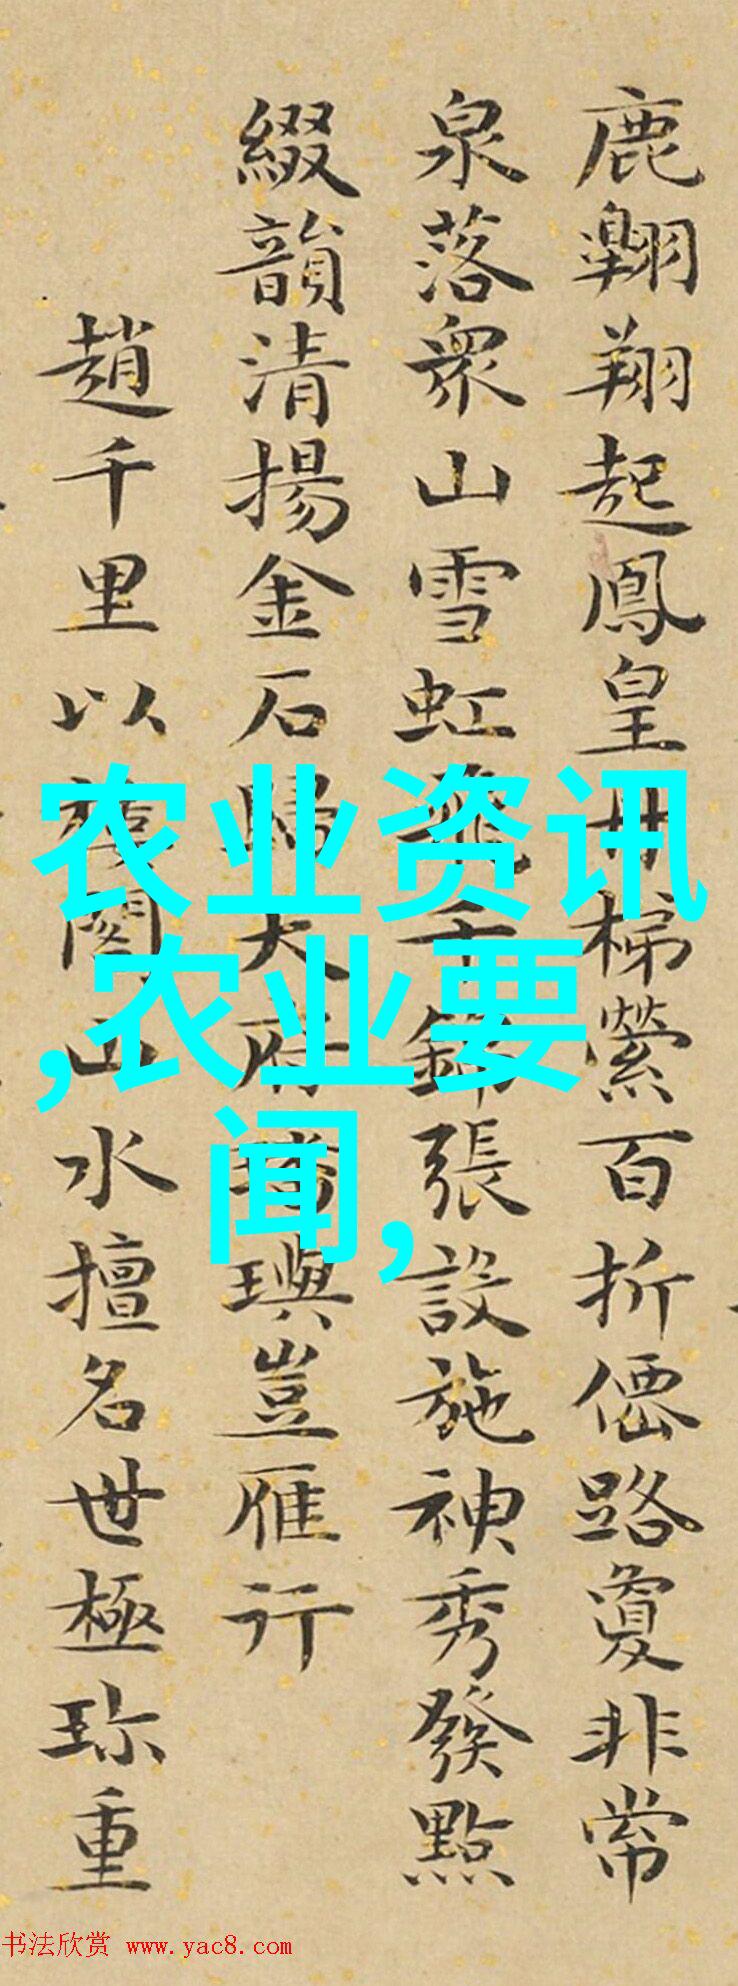 鹿翱翔起鳳皇丹梯縈百折僊路敻非常
泉落衆山雪虹飛千錦張設施神秀發點
綴韻清揚金石歸大府璠璵豈雁行
趙千里以臺閣山水擅名世極珎重
农业资讯
,农业要
闻,
书法欣赏 www.yac8.com